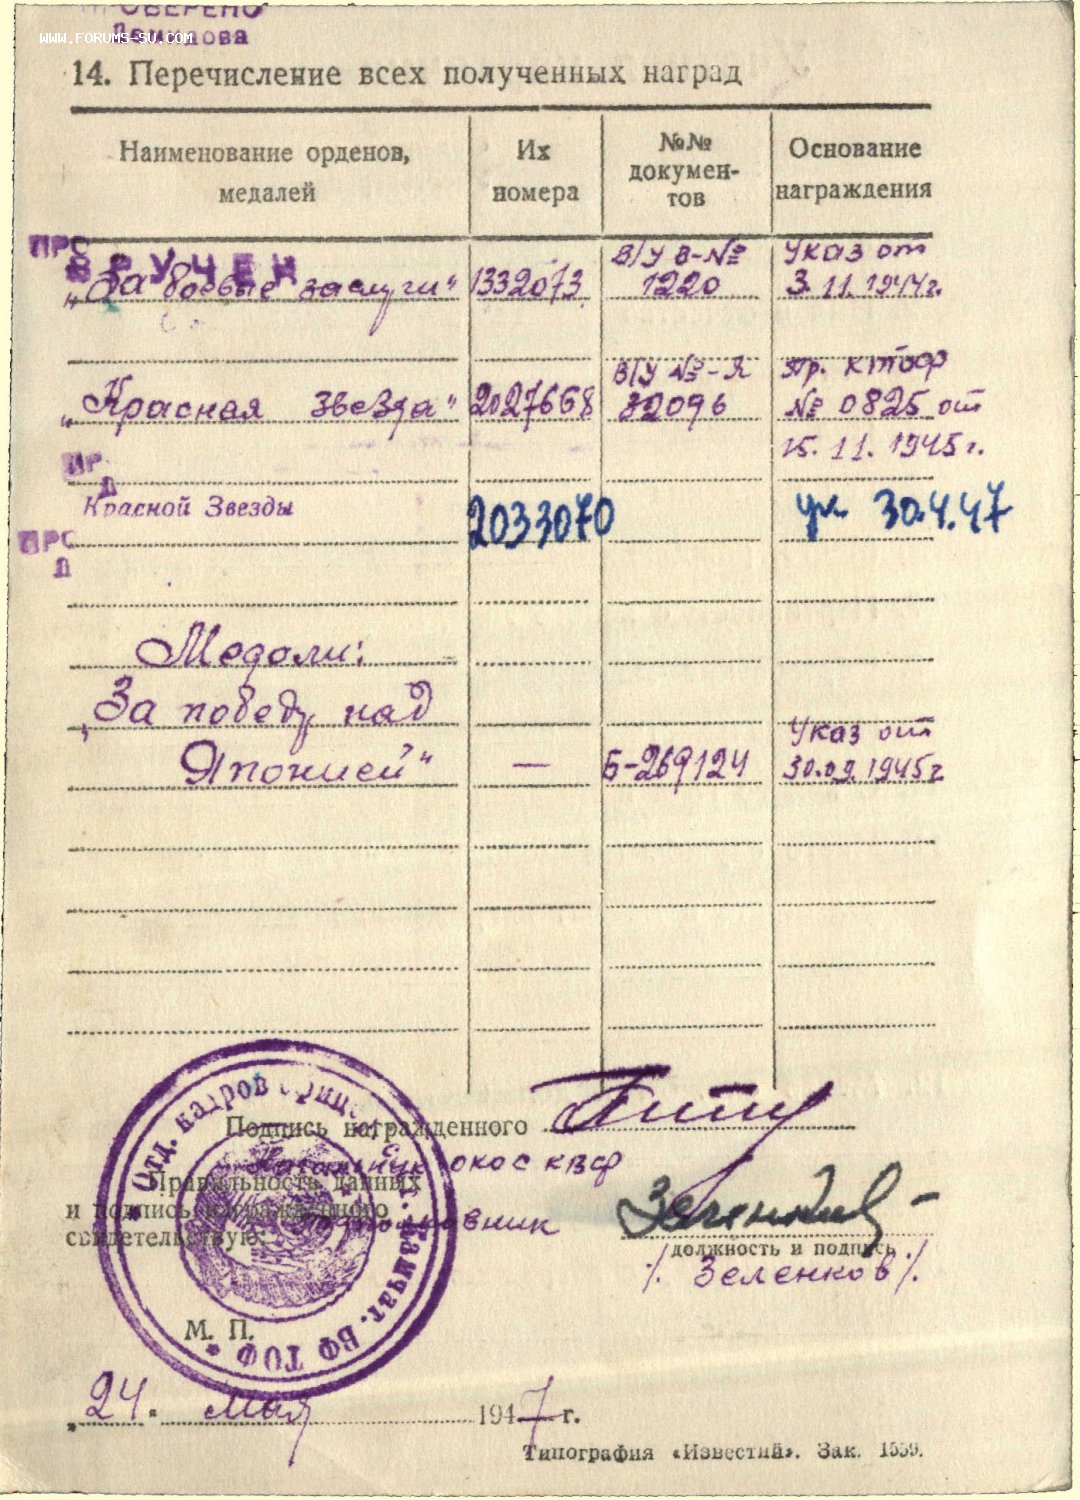 ПРОВЕРЕНО
WWW.FORUMS-SU.COM
14. Перечисление всех полученных наград
Наименование орденов, медалей
Их номера
№№ докумен-тов
Основание награждения
ВРУЧЕН
„За боевые заслуги“ 1332073 В/У В-№ 1220 Указ от 3.11.1944г.
„Красная звезда“ 2027668 В/У №-Я 32096 Пр. КТОФ № 0825 от 15.11.1945г.
Красной Звезды 2033070 ук 30.4.47
Медали:
„За победу над
Японией“ — Б-269124 Указ от 30.09.1945г
Подпись награжденного
Начальник ОКОС КВФ
Правильность данных
и подпись награжденного
свидетельствую:
Подполковник
Зеленков
должность и подпись
/Зеленков/.
Отд. кадров офицерск. сост. Камчат. ВФ ТОФ
М. П.
„24“ мая 1947 г.
Типография «Известий». Зак. 1559.